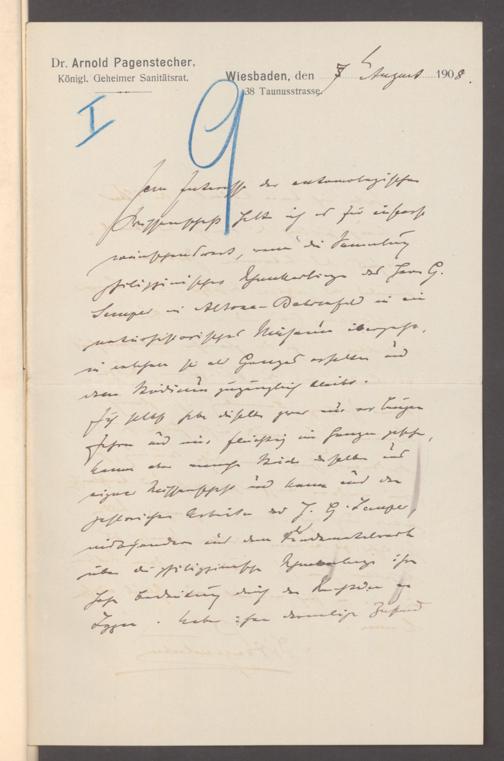 Dr. Arnold Pagenstecher.
Königl. Geheimer Sanitätsrat.
Wiesbaden, den 7 August 1908.
38 Taunusstrasse.
I
9
Im Interesse der entomologischen
Wissenschaft halte ich es für äusserst
wünschenswert, wenn die Sammlung
philippinischer Schmetterlinge des Herrn G.
Semper in Altona-Bahrenfeld in ein
naturhistorisches Museum übergeht,
in welchem sie als Ganzes erhalten und
dem Studium zugänglich bleibt.
Ich selbst habe dieselbe zwar nur vor langen
Jahren und nur flüchtig im Ganzen gesehen,
kenne aber manche Stücke derselben aus
eigener Wissenschaft und kann aus den
Arbeiten des H. G. Semper,
und dem
über die philippinischen Schmetterlinge ihre
hohe Bedeutung